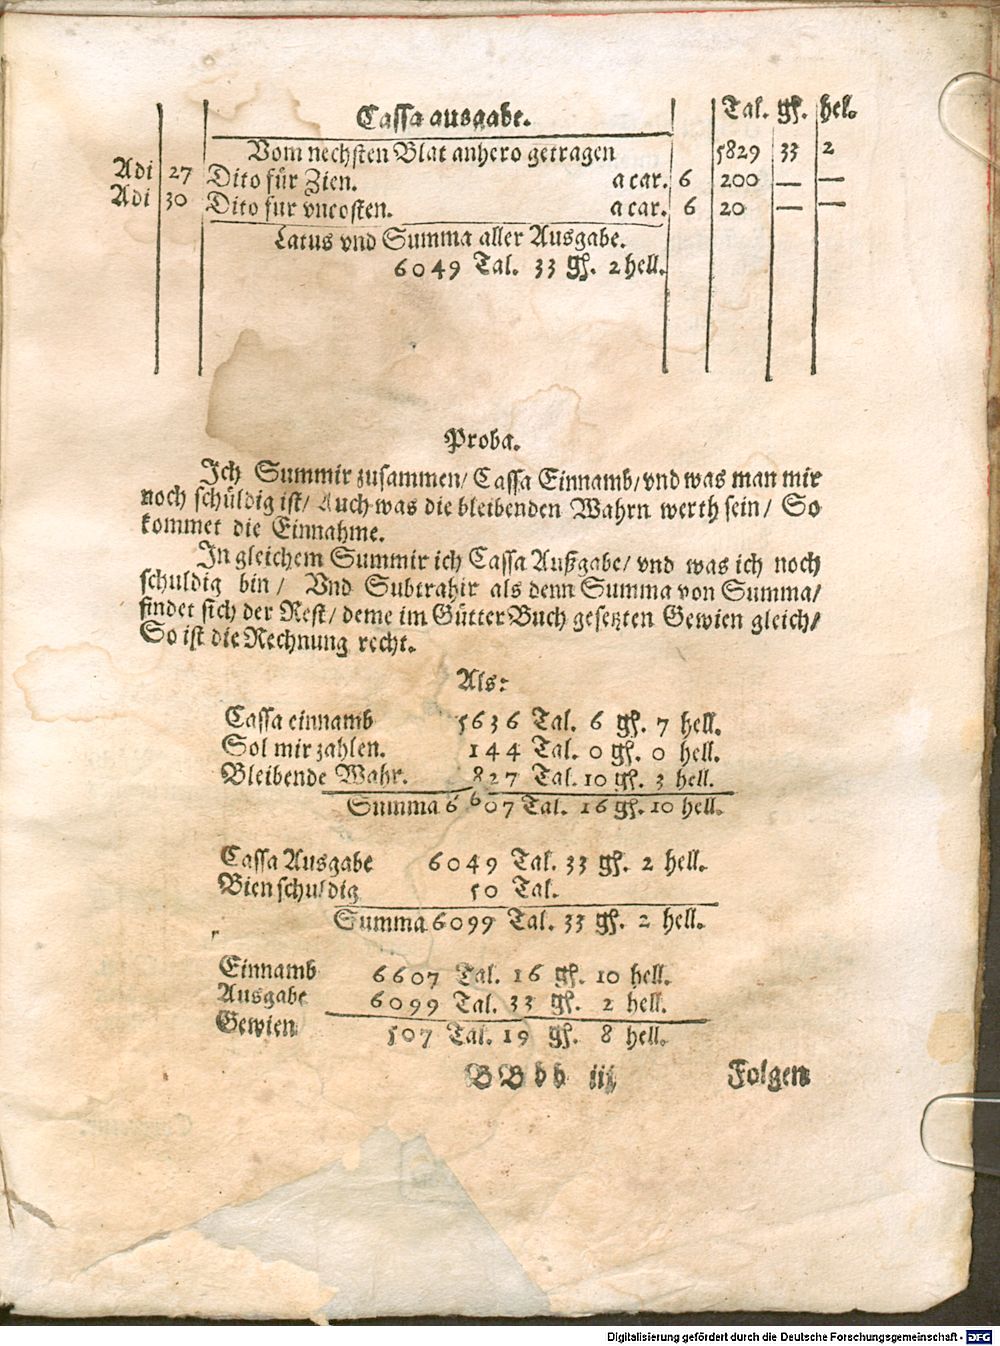 Cassa ausgabe. Tal. gl. hel.
Vom nechsten Blat anhero getragen 5829 33 2
Adi 27 Dito für Zien. a car. 6 200 — —
Adi 30 Dito fur vncosten. a car. 6 20 — —
Latus vnd Summa aller Ausgabe.
6049 Tal. 33 gl. 2 hell.
Proba.
Ich Summir zusammen/ Cassa Einnamb/ vnd was man mir
noch schüldig ist/ Auch was die bleibenden Wahrn werth sein/ So
kommet die Einnahme.
In gleichem Summir ich Cassa Außgabe/ vnd was ich noch
schuldig bin/ Vnd Subtrahir als denn Summa von Summa/
findet sich der Rest/ deme im Gütter Buch gesetzten Gewien gleich/
So ist die Rechnung recht.
Als:
Cassa einnamb 5636 Tal. 6 gl. 7 hell.
Sol mir zahlen. 144 Tal. 0 gl. 0 hell.
Bleibende Wahr. 827 Tal. 10 gl. 3 hell.
Summa 6607 Tal. 16 gl. 10 hell.
Cassa Ausgabe 6049 Tal. 33 gl. 2 hell.
Bien schuldig 50 Tal.
Summa 6099 Tal. 33 gl. 2 hell.
Einnamb 6607 Tal. 16 gl. 10 hell.
Ausgabe 6099 Tal. 33 gl. 2 hell.
Gewien 507 Tal. 19 gl. 8 hell.
BBbb iij
Folgen
Digitalisierung gefördert durch die Deutsche Forschungsgemeinschaft - DFG